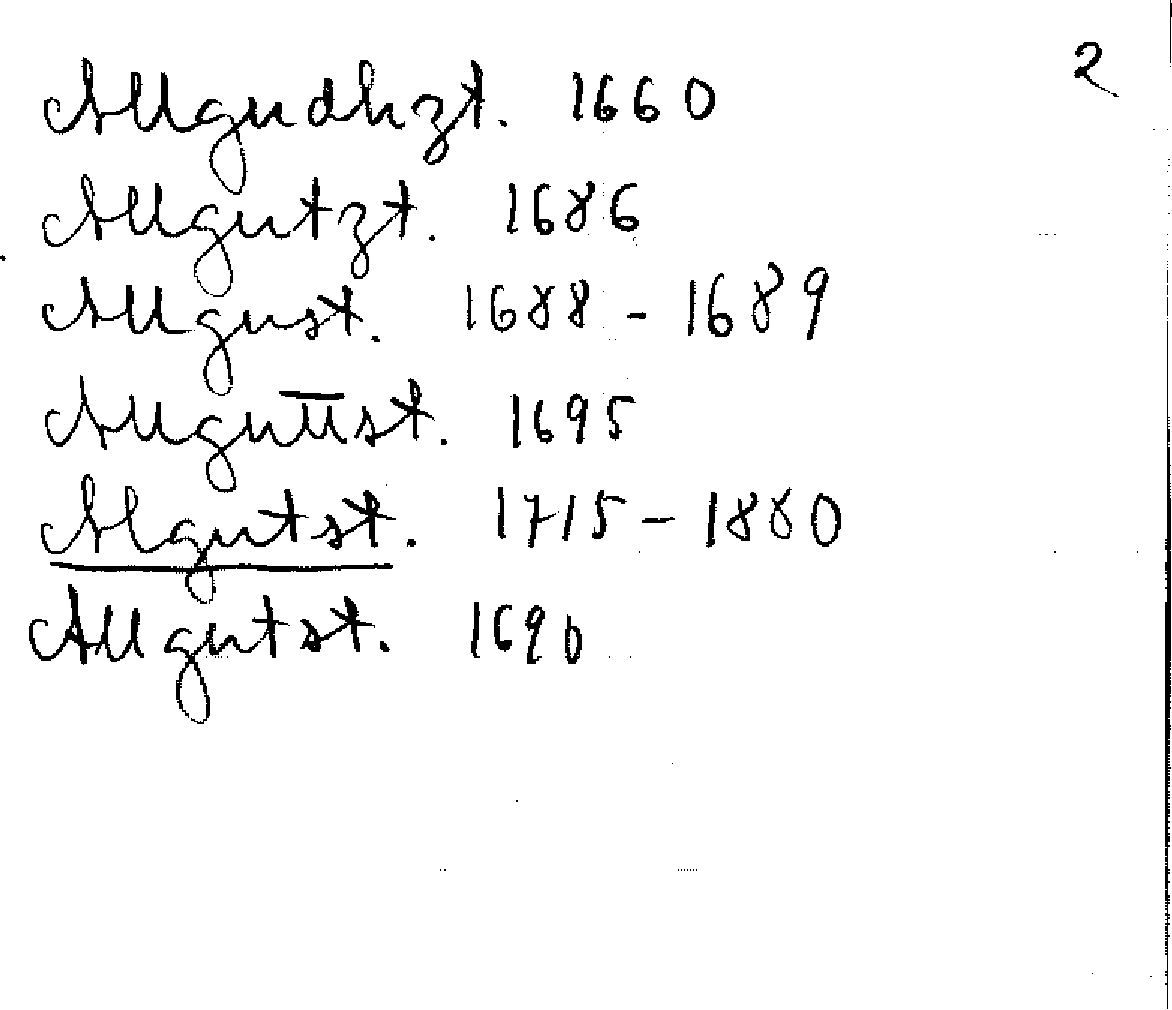 2
Allgudhzt. 1660
Allgutzt. 1686
Allgust. 1688 - 1689
Allguūst. 1695
Algutst. 1715 - 1880
Allgutst. 1690